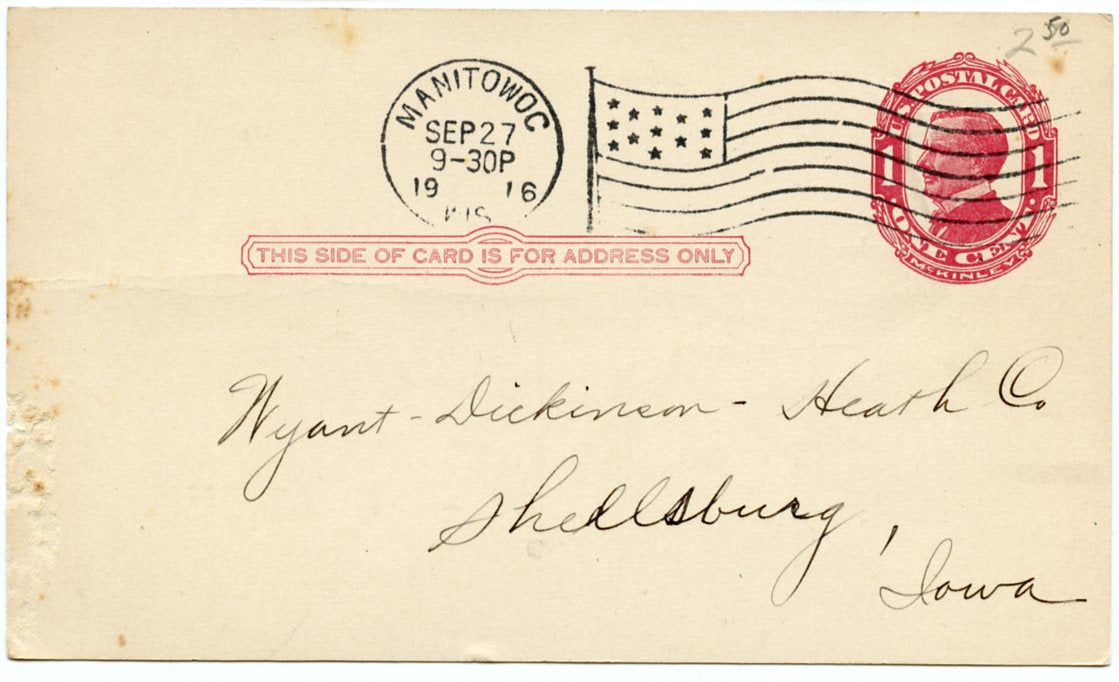 2 50
MANITOWOC
SEP 27
9-30P
19 16
WIS
U.S. POSTAL CARD
1 1
ONE CENT
McKINLEY
THIS SIDE OF CARD IS FOR ADDRESS ONLY
Wyant-Dickinson-Heath Co
Shellsburg,
Iowa